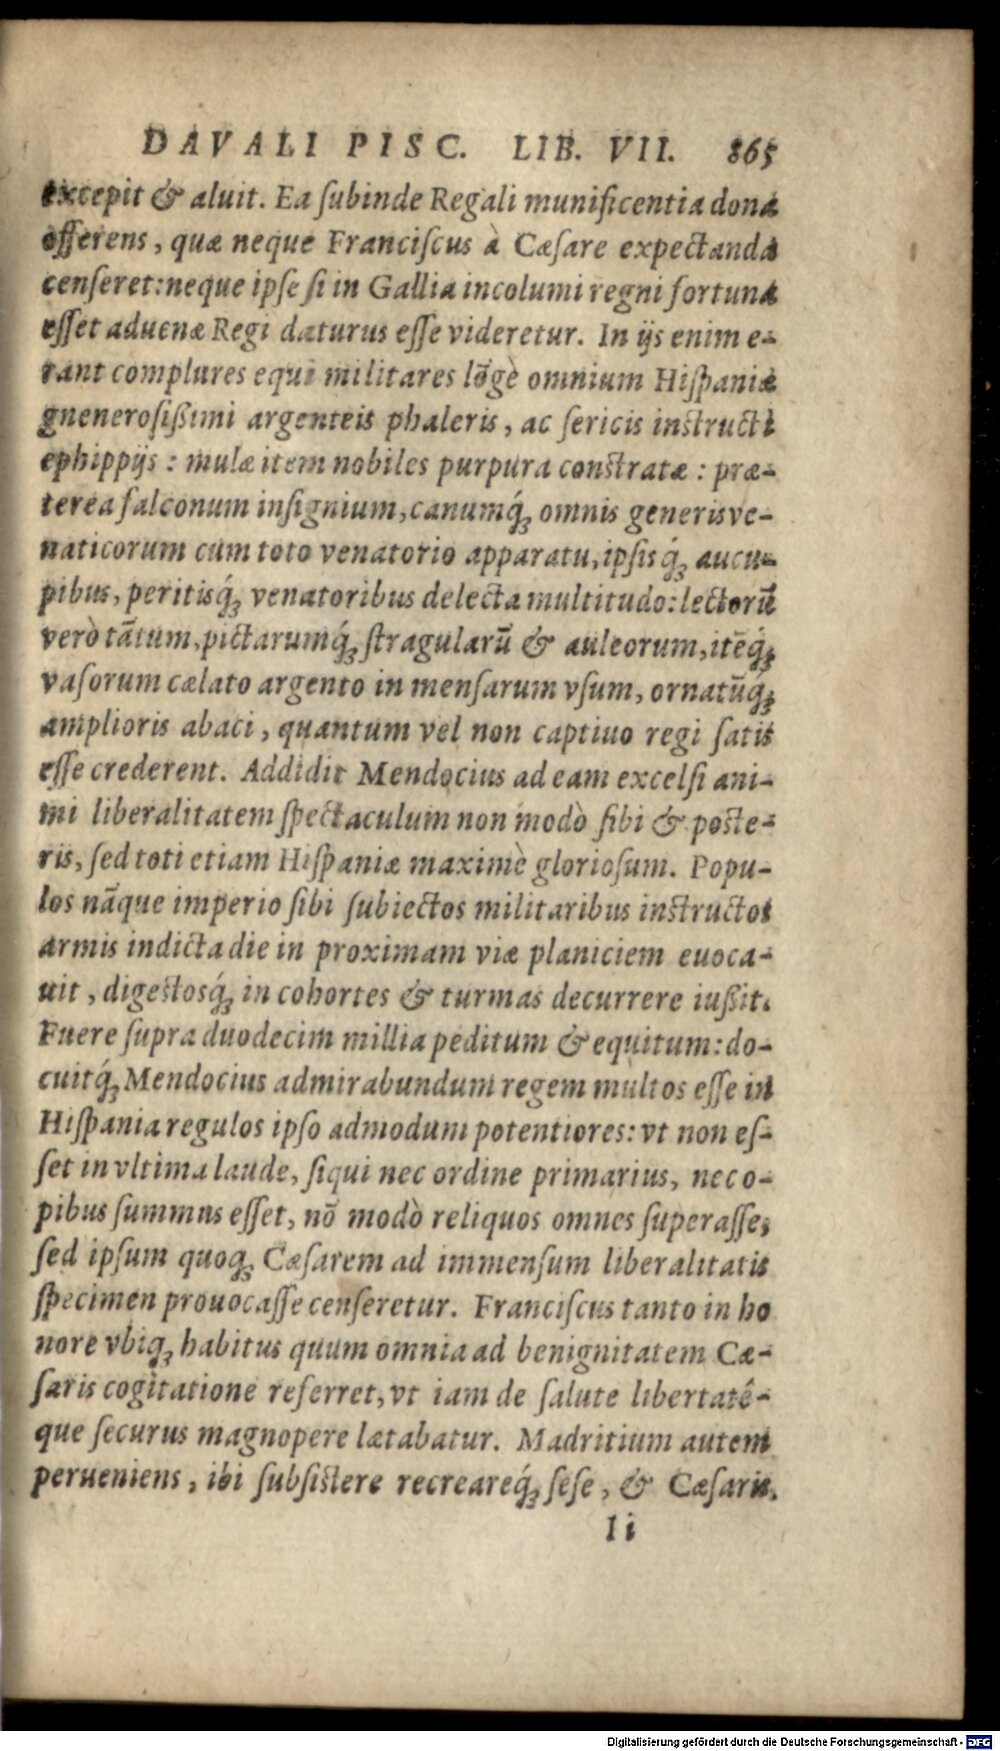 DAVALI PISC. LIB. VII. 865
excepit & aluit. Ea ſubinde Regali munificentia dona
offerens, quæ neque Franciſcus à Cæſare expectanda
cenſeret: neque ipſe ſi in Gallia incolumi regni fortuna
eſſet aduenæ Regi daturus eſſe videretur. In ijs enim e-
rant complures equi militares lõgè omnium Hiſpaniæ
gneneroſißimi argenteis phaleris, ac ſericis instructi
ephippijs: mulæ item nobiles purpura constratæ: præ-
terea falconum inſignium, canumq́; omnis generis ve-
naticorum cum toto venatorio apparatu, ipſisq́; aucu-
pibus, peritisq́; venatoribus delecta multitudo: lectorũ
verò tãtum, pictarumq́; ſtragularũ & auleorum, itẽq́;
vaſorum cælato argento in menſarum vſum, ornatũq́;
amplioris abaci, quantum vel non captiuo regi ſatis
eſſe crederent. Addidit Mendocius ad eam excelſi ani-
mi liberalitatem ſpectaculum non modò ſibi & poste-
ris, ſed toti etiam Hiſpaniæ maximè glorioſum. Popu-
los nãque imperio ſibi ſubiectos militaribus instructos
armis indicta die in proximam viæ planiciem euoca-
uit, digestosq́; in cohortes & turmas decurrere iußit.
Fuere ſupra duodecim millia peditum & equitum: do-
cuitq́; Mendocius admirabundum regem multos eſſe in
Hiſpania regulos ipſo admodum potentiores: vt non eſ-
ſet in vltima laude, ſiqui nec ordine primarius, nec o-
pibus ſummus eſſet, nõ modò reliquos omnes ſuperaſſe,
ſed ipſum quoq; Cæſarem ad immenſum liberalitatis
ſpecimen prouocaſſe cenſeretur. Franciſcus tanto in ho
nore vbiq; habitus quum omnia ad benignitatem Cæ-
ſaris cogitatione referret, vt iam de ſalute libertatê-
que ſecurus magnopere lætabatur. Madritium autem
perueniens, ibi ſubſistere recreareq́; ſeſe, & Cæſaris.
Ii
Digitalisierung gefördert durch die Deutsche Forschungsgemeinschaft - DFG